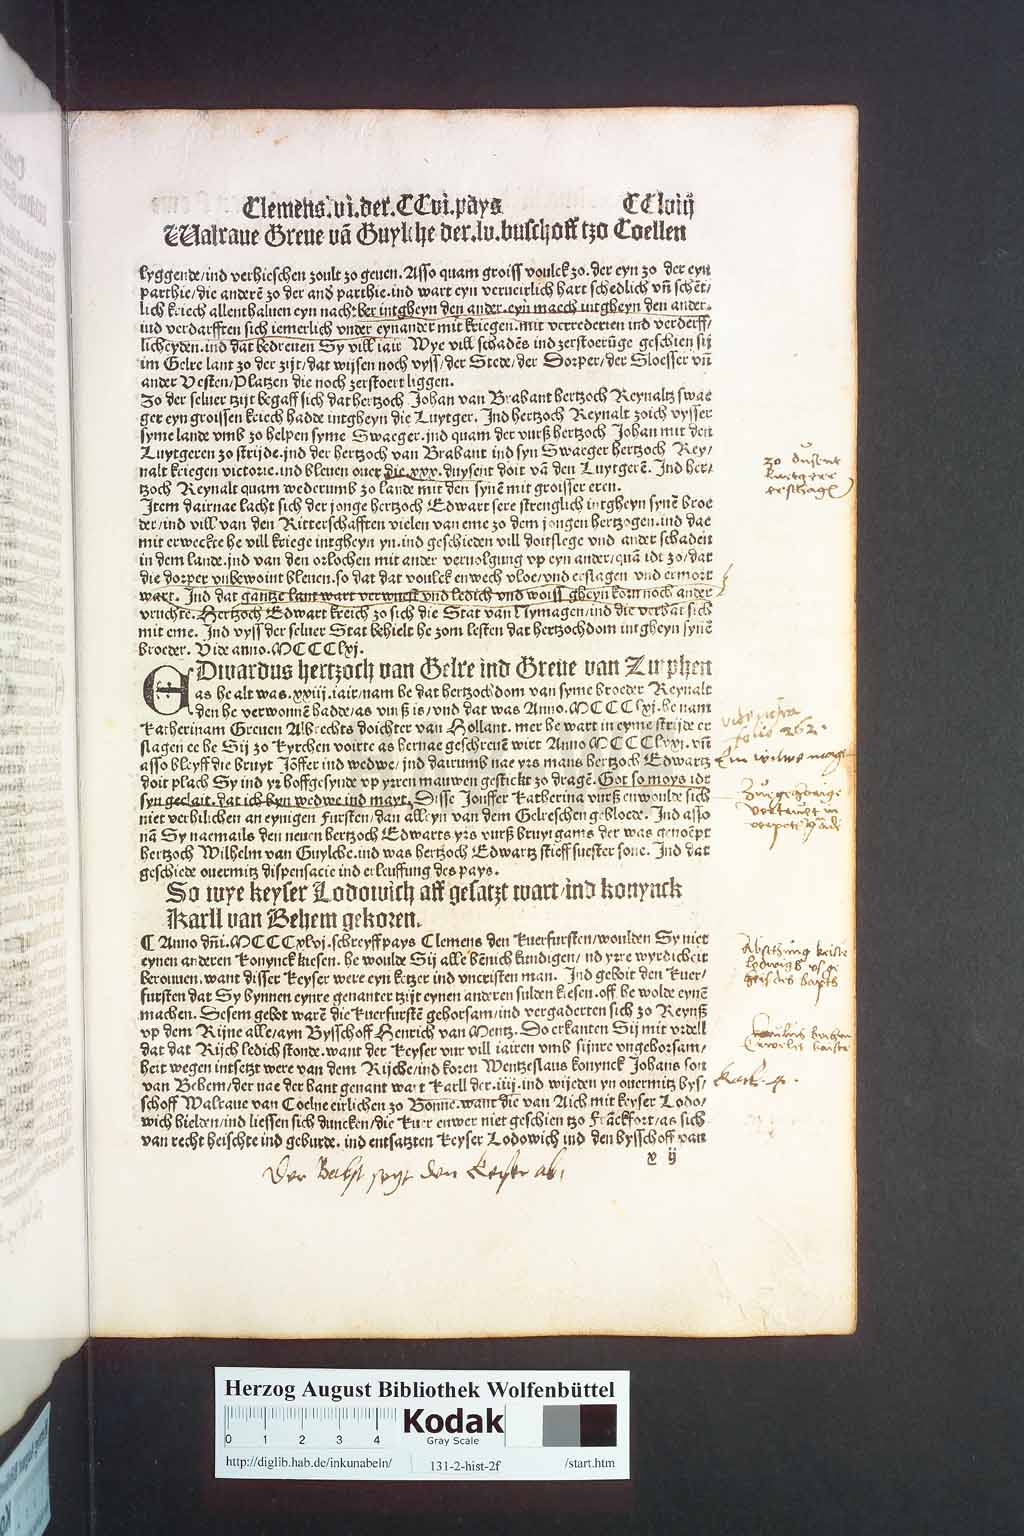 Clemens.vi.der.CCvi.pays CClviij
Walraue Greue vā Guylche der.lv.buschoff tzo Coellen
lyggende/ind verhieschen zoult zo geuen. Also quam groiss voulck zo. der eyn zo der eyn
parthie/die anderē zo der and parthie.ind wart eyn verveirlich hart schedlich vñ schēt/
lich kriech allenthaluen eyn nach:ber intgheyn den ander.eyn maech intgheyn den ander.
ind verdarfften sich iemerlich vnder eynander mit kriegen.mit verrederien ind verderff/
licheyden.ind dat bedreuen Sy vill iair Wye vill schadēs ind zerstoerūge geschien sij
im Gelre lant zo der zijt/dat wijsen noch vyss/der Stede/der Dorper/der Sloesser vñ
ander Vesten/Platzen die noch zerstoert liggen.
Zo der seluer tzijt begaff sich dat hertzoch Johan van Brabant hertzoch Reynaltz swae
ger eyn groissen kriech hadde intgheyn die Luytger. Ind hertzoch Reynalt zoich vysser
syme lande vmb zo helpen syme Swaeger.ind quam der vurß hertzoch Johan mit den
Luytgeren zo strijde.ind der hertzoch van Brabant ind syn Swaeger hertzoch Rey/
nalt kriegen victorie.ind bleuen ouer die xxx.duysent doit vā den Luytgerē. Ind her/
tzoch Reynalt quam wederumb zo lande mit den synē mit groisser eren.
Item dairnae lacht sich der jonge hertzoch Edwart sere strenglich intgheyn synē broe
der/ind vill van den Ritterschafften vielen van eme zo dem jongen hertzogen.ind dae
mit erweckte he vill kriege intgheyn yn.ind geschieden vill doitslege vnd ander schaden
in dem lande.ind van den orlochen mit ander vervolgung vp eyn ander/quā idt zo/dat
die dorper vnbewoint bleuen.so dat dat voulck enwech vloe/vnd erslagen vnd ermort
wart. Ind dat gantze lant wart verwuest vnd ledich vnd woiss gheyn korn noch ander
vruchte. Hertzoch Edwart kreich zo sich die Stat van Nymagen/ind die verbāt sich
mit eme. Ind vyss der seluer Stat behielt he zom lesten dat hertzochdom intgheyn synē
broeder. Vide anno.MCCCClxj.
EDwardus hertzoch van Gelre ind Greue van Zutphen
as he alt was.xxiij.iair/nam he dat hertzochdom van syme broeder Reynalt
den he verwonnē hadde/as vurß is/vnd dat was Anno.MCCCClxj.he nam
Katherinam Greuen Albrechts doichter van Hollant. mer he wart in eyme strijde er
slagen ee he Sij zo Kyrchen voirte as hernae geschreuē wirt Anno MCCCClxxj. vñ
asso bleyff die bruyt Joffer ind wedwe/ind dairumb nae yrs mans hertzoch Edwartz
doit plach Sy ind yr hoffgesynde vp yrren mauwen gestickt zo dragē. Got so moys idt
syn geclait.dat ich byn wedwe ind mayt. Disse Jouffer Katherina vurß enwoulde sich
niet verhilichen an eynigen Fursten/dan alleyn van dem Gelreschen gebloede. Ind asso
nā Sy naemails den neuen hertzoch Edwarts yrs vurß bruytgams der was genoēpt
hertzoch Wilhelm van Guylche.ind was hertzoch Edwartz stieff suester sone. Ind dat
geschiede ouermitz dispensacie ind erleuffung des pays.
So wye keyser Lodowich aff gesatzt wart/ind konynck
Karll van Behem gekoren.
¶ Anno dñi.MCCCxlvj.schreyff pays Clemens den Kuerfursten/woulden Sy niet
eynen anderen Konynck kiesen. he woulde Sij alle bēnich kundigen/ nd yrre wyrdicheit
berouuen. want disser Keyser were eyn ketzer ind vncristen man. Ind geboit den Kuer/
fursten dat Sy bynnen eynre genanter tzijt eynen anderen sulden kiesen.off he wolde eynē
machen. Desem gebot warē die Kuerfurstē gehorsam/ind vergaderten sich zo Reynß
vp dem Rijne alle/ayn Bysschoff Henrich van Mentz. Do erkanten Sij mit vrdell
dat dat Rijch ledich stonde.want der Keyser vur vill iairen vmb sijnre vngehorsam/
heit wegen intsetzt were van dem Rijche/ind koren Wentzeslaus konynck Johans son
van Behem/der nae der hant genant wart Karll der.iiij.ind wijeden yn ouermitz bys/
schoff Walraue van Coelne eirlichen zo Bonne.want die van Aich mit keyser Lodo/
wich hielden/ind liessen sich duncken/die kuer enwer niet geschien tzo Frāckfort/as sich
van recht heischte ind geburde. ind entsatzten Keyser Lodowich ind den bysschoff van
x ij
zo dusent
Luetger
erschlagē
vide infra
folio 262.
Ein witwe
Absetzung keiser
Ludwigs
des bapsts
Carolus
Erwelet keiser
Karle 4.
Der Babst setzt den Keyser ab.
Herzog August Bibliothek Wolfenbüttel
0 1 2 3 4
Kodak
Gray Scale
http://diglib.hab.de/inkunabeln/ 131-2-hist-2f /start.htm